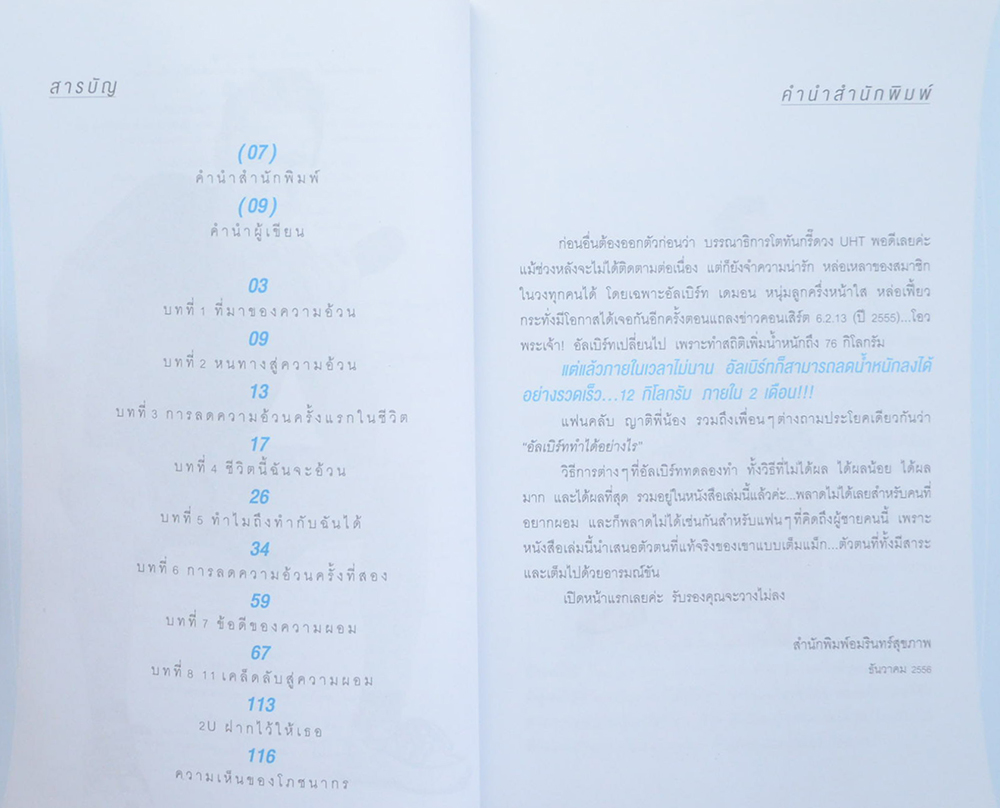 สารบัญ
(07)
คำนำสำนักพิมพ์
(09)
คำนำผู้เขียน
03
บทที่ 1 ที่มาของความอ้วน
09
บทที่ 2 หนทางสู่ความอ้วน
13
บทที่ 3 การลดความอ้วนครั้งแรกในชีวิต
17
บทที่ 4 ชีวิตนี้ฉันจะอ้วน
26
บทที่ 5 ทำไมถึงทำกับฉันได้
34
บทที่ 6 การลดความอ้วนครั้งที่สอง
59
บทที่ 7 ข้อดีของความผอม
67
บทที่ 8 11 เคล็ดลับสู่ความผอม
113
2U ฝากไว้ให้เธอ
116
ความเห็นของโภชนากร
คำนำสำนักพิมพ์
ก่อนอื่นต้องออกตัวก่อนว่า บรรณาธิการโตทันกรี๊ดวง UHT พอดีเลยค่ะ
แม้ช่วงหลังจะไม่ได้ติดตามต่อเนื่อง แต่ก็ยังจำความน่ารัก หล่อเหลาของสมาชิก
ในวงทุกคนได้ โดยเฉพาะอัลเบิร์ท เดมอน หนุ่มลูกครึ่งหน้าใส หล่อเฟี้ยว
กระทั่งมีโอกาสได้เจอกันอีกครั้งตอนแถลงข่าวคอนเสิร์ต 6.2.13 (ปี 2555)...โอว
พระเจ้า! อัลเบิร์ทเปลี่ยนไป เพราะทำสถิติเพิ่มน้ำหนักถึง 76 กิโลกรัม
แต่แล้วภายในเวลาไม่นาน อัลเบิร์ทก็สามารถลดน้ำหนักลงได้
อย่างรวดเร็ว...12 กิโลกรัม ภายใน 2 เดือน!!!
แฟนคลับ ญาติพี่น้อง รวมถึงเพื่อนๆต่างถามประโยคเดียวกันว่า
"อัลเบิร์ททำได้อย่างไร"
วิธีการต่างๆที่อัลเบิร์ททดลองทำ ทั้งวิธีที่ไม่ได้ผล ได้ผลน้อย ได้ผล
มาก และได้ผลที่สุด รวมอยู่ในหนังสือเล่มนี้แล้วค่ะ...พลาดไม่ได้เลยสำหรับคนที่
อยากผอม และก็พลาดไม่ได้เช่นกันสำหรับแฟนๆที่คิดถึงผู้ชายคนนี้ เพราะ
หนังสือเล่มนี้นำเสนอตัวตนที่แท้จริงของเขาแบบเต็มแม็ก...ตัวตนที่ทั้งมีสาระ
และเต็มไปด้วยอารมณ์ขัน
เปิดหน้าแรกเลยค่ะ รับรองคุณจะวางไม่ลง
สำนักพิมพ์อมรินทร์สุขภาพ
ธันวาคม 2556